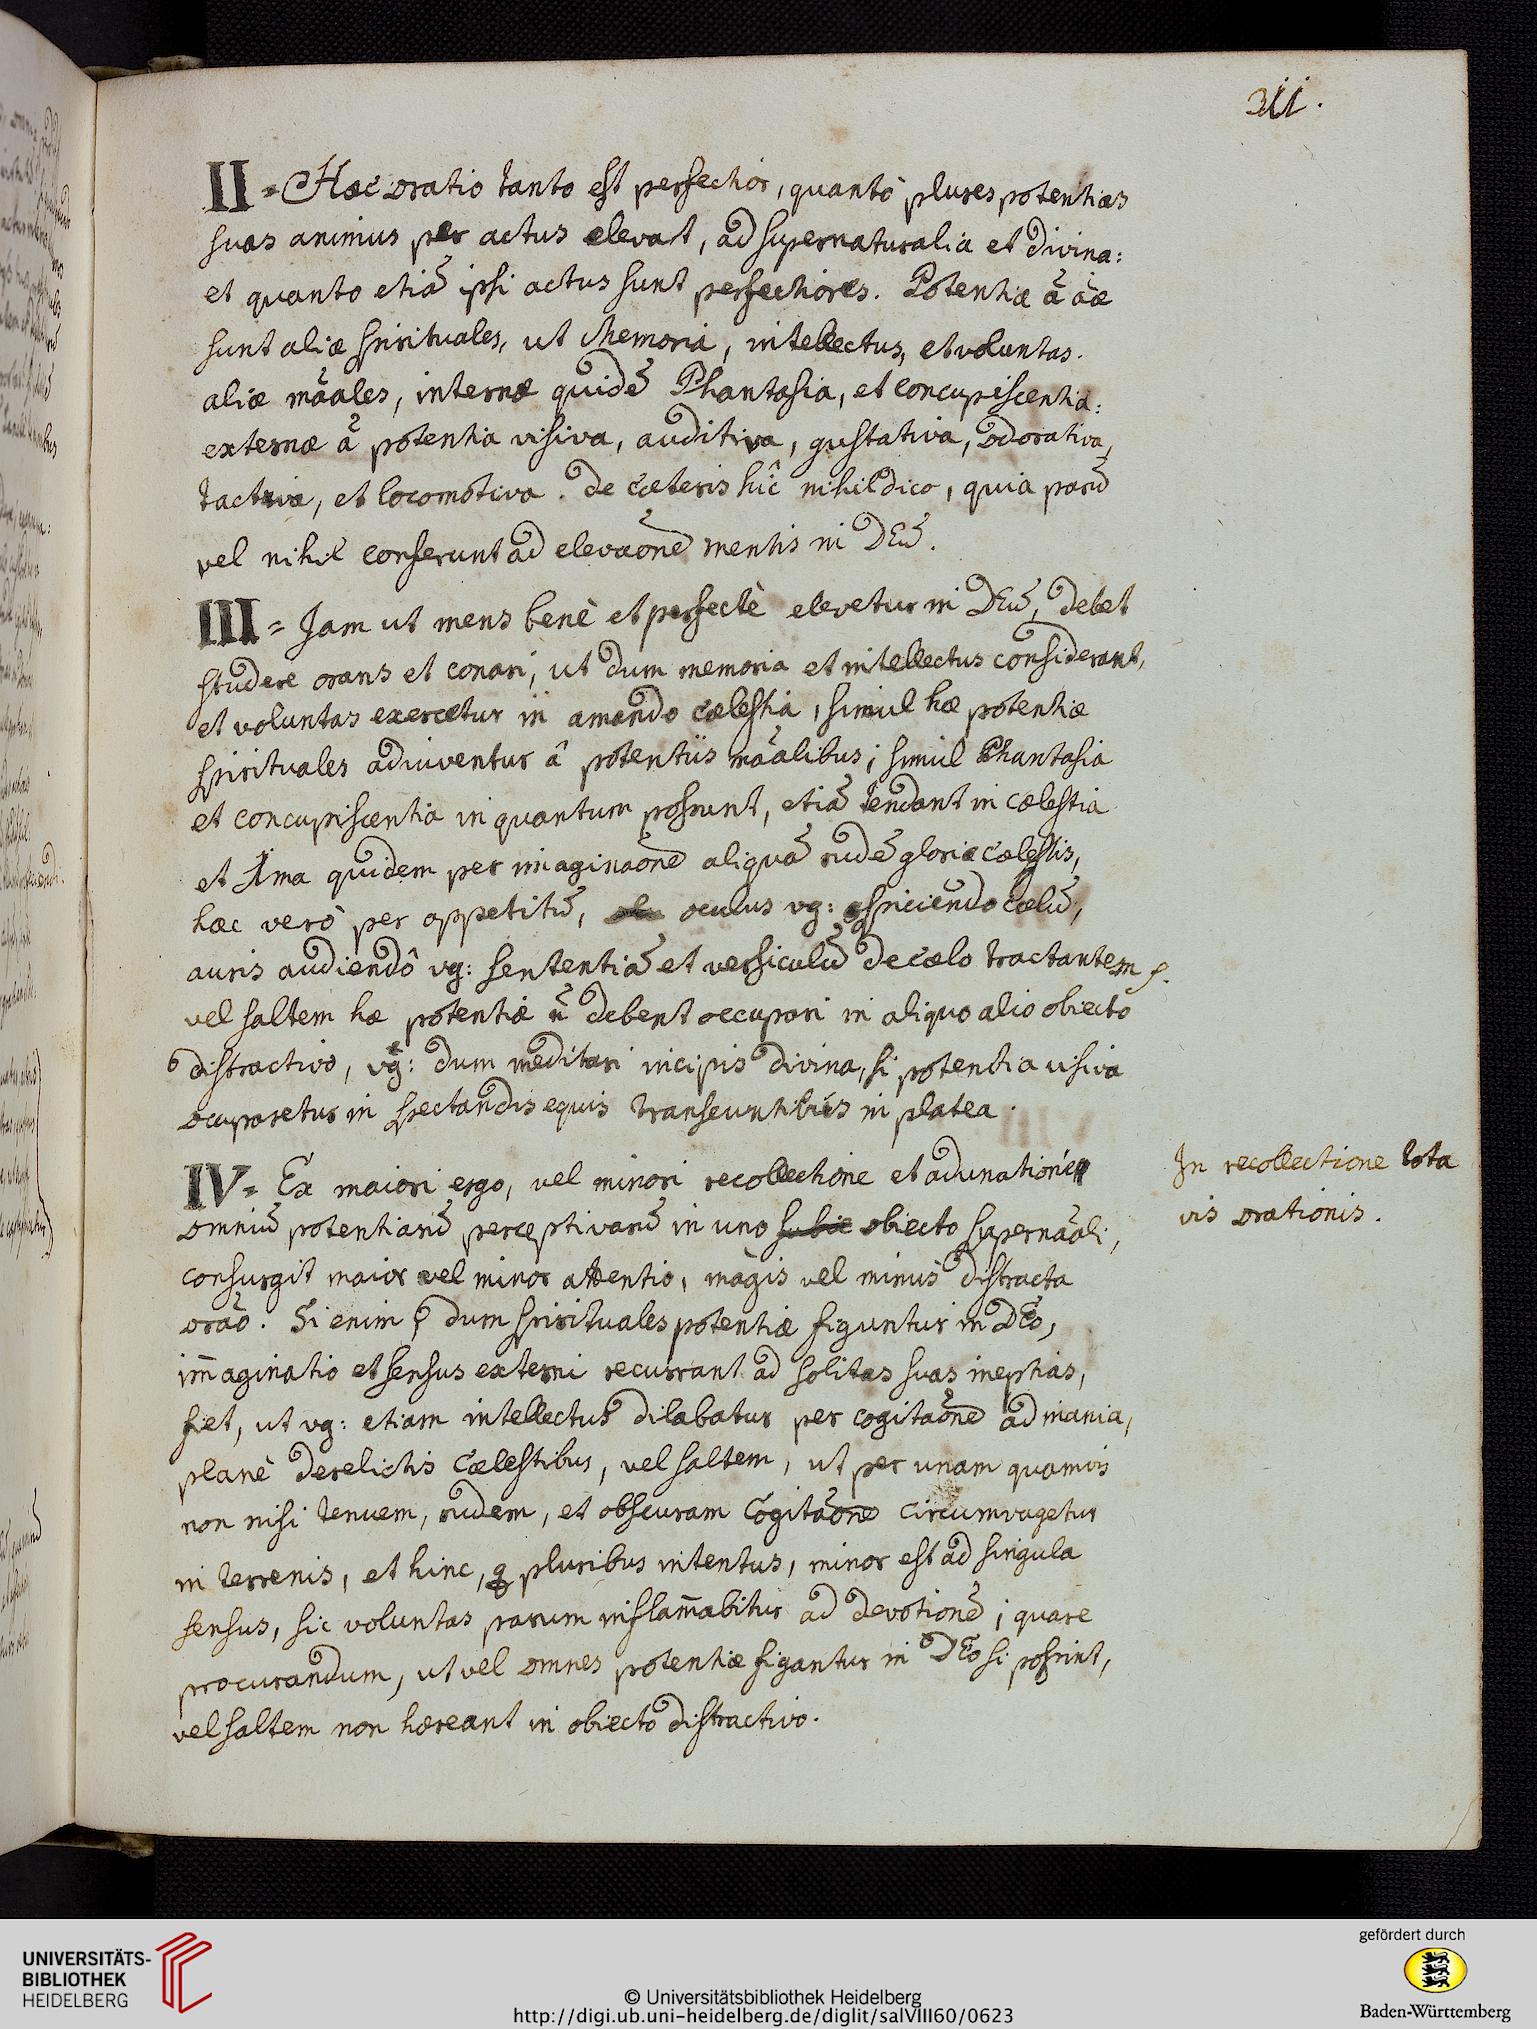 311.
II = Hæc oratio tanto est perfectior, quantò plures potentias
suas animus per actus elevat, ad supernaturalia et divina:
et quanto etiã ipsi actus sunt perfectiores. Potentiæ ã aæ
sunt aliæ spirituales, ut Memoria, intellectus, et voluntas.
aliæ mãales, internæ quidẽ Phantasia, et concupiscentia:
externæ ã potentia visiva, auditiva, gustativa, odorativa,
tactiva, et locomotiva. De cæteris hîc nihil dico, quia parũ
vel nihil conferunt ad elevãonẽ mentis in DEũ.
III = Jam ut mens benè et perfectè elevetur in DEũ, debet
studere orans et conari, ut dum memoria et intellectus considerant,
et voluntas exercetur in amando cælestia, simul hæ potentiæ
spirituales adiuventur â potentiis mãalibus; simul Phantasia
et concupiscentia in quantum possunt, etiã tendant in cælestia
et Ima quidem per imaginãonẽ aliquã rudẽ gloriæ cælestis,
hæc verò per appetitũ, oculus vg: aspiciendo cælũ,
auris audiendô vg: sententiã et versiculũ de cælo tractantem
vel saltem hæ potentiæ ñ debent occupari in aliquo alio obiecto
distractivo, vg: dum meditari incipis divina, si potentia visiva
occuparetur in spectandis equis transeuntibus in platea.
IV = Ex maiori ergo, vel minori recollectione et adunatione
omniũ potentiarũ perceptivarũ in uno obiecto supernãali,
consurgit maior vel minor attentio, màgis vel minùs distracta
orãõ. Si enim dum spirituales potentiæ figuntur in DEo,
im̃aginatio et sensus externi recurrant ad solitas suas ineptias,
fiet, ut vg: etiam intellectus dilabatur per cogitãonẽ ad inania,
planè derelictis cælestibus, vel saltem, ut per unam quamvis
non nisi tenuem, rudem, et obscuram cogitãonẽ circumvagetur
in terrenis, et hinc, q pluribus intentus, minor est ad singula
sensus, sic voluntas parum inflam̃abitur ad devotionẽ; quare
procurandum, ut vel omnes potentiæ figantur in DEo si possint,
vel saltem non hæreant in obiecto distractivo.
In recollectione tota
vis orationis.
UNIVERSITÄTS-
BIBLIOTHEK
HEIDELBERG
© Universitätsbibliothek Heidelberg
http://digi.ub.uni-heidelberg.de/diglit/salVIII60/0623
gefördert durch
Baden-Württemberg